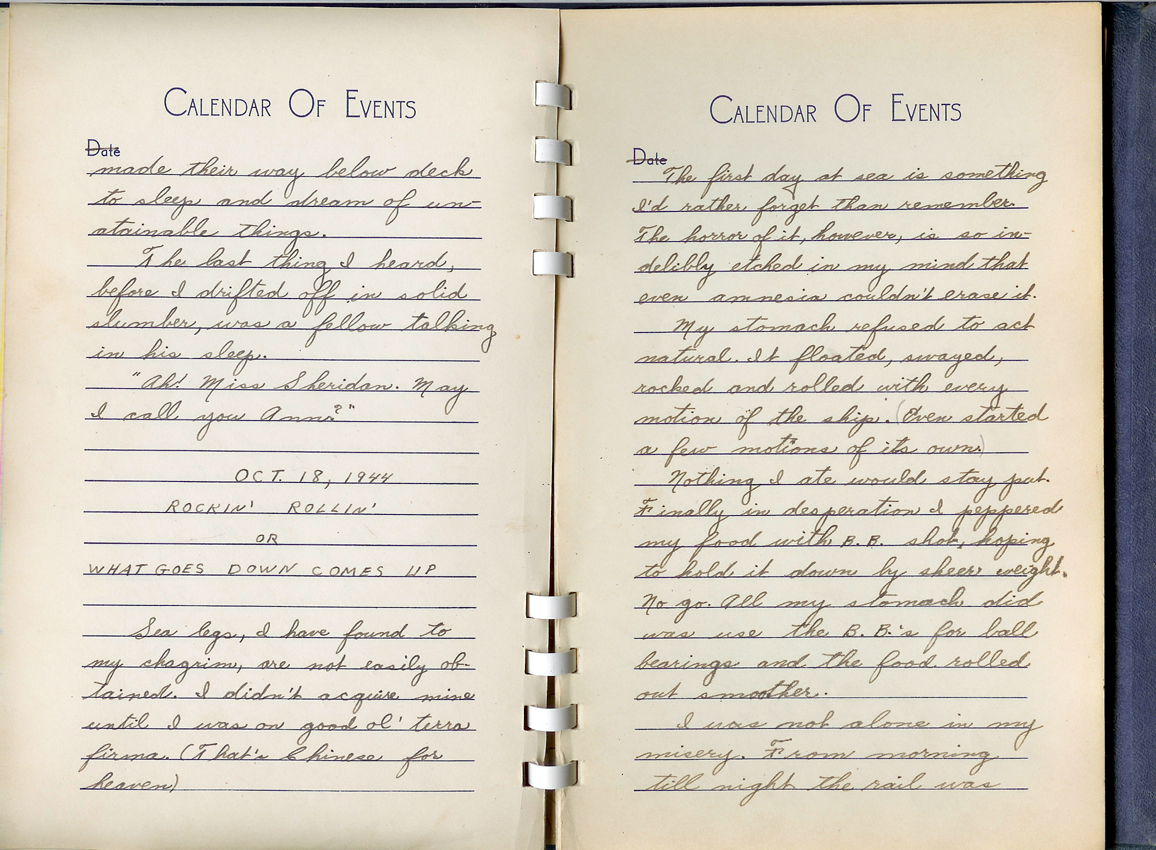 CALENDAR OF EVENTS
Date
made their way below deck
to sleep and dream of un-
atainable things.
The last thing I heard,
before I drifted off in solid
slumber, was a fellow talking
in his sleep.
"Ah! Miss Sheridan. May
I call you Anna?"
OCT. 18, 1944
ROCKIN' ROLLIN'
OR
WHAT GOES DOWN COMES UP
Sea legs, I have found to
my chagrin, are not easily ob-
tained. I didn't acquire mine
until I was on good ol' terra
firma. (That's Chinese for
heaven)
CALENDAR OF EVENTS
Date
The first day at sea is something
I'd rather forget than remember.
The horror of it, however, is so in-
delibly etched in my mind that
even amnesia couldn't erase it.
My stomach refused to act
natural. It floated, swayed,
rocked and rolled with every
motion of the ship. (Even started
a few motions of its own.)
Nothing I ate would stay put.
Finally in desperation I peppered
my food with B.B. shot, hoping
to hold it down by sheer weight.
No go. All my stomach did
was use the B.B.'s for ball
bearings and the food rolled
out smoother.
I was not alone in my
misery. From morning
till night the rail was